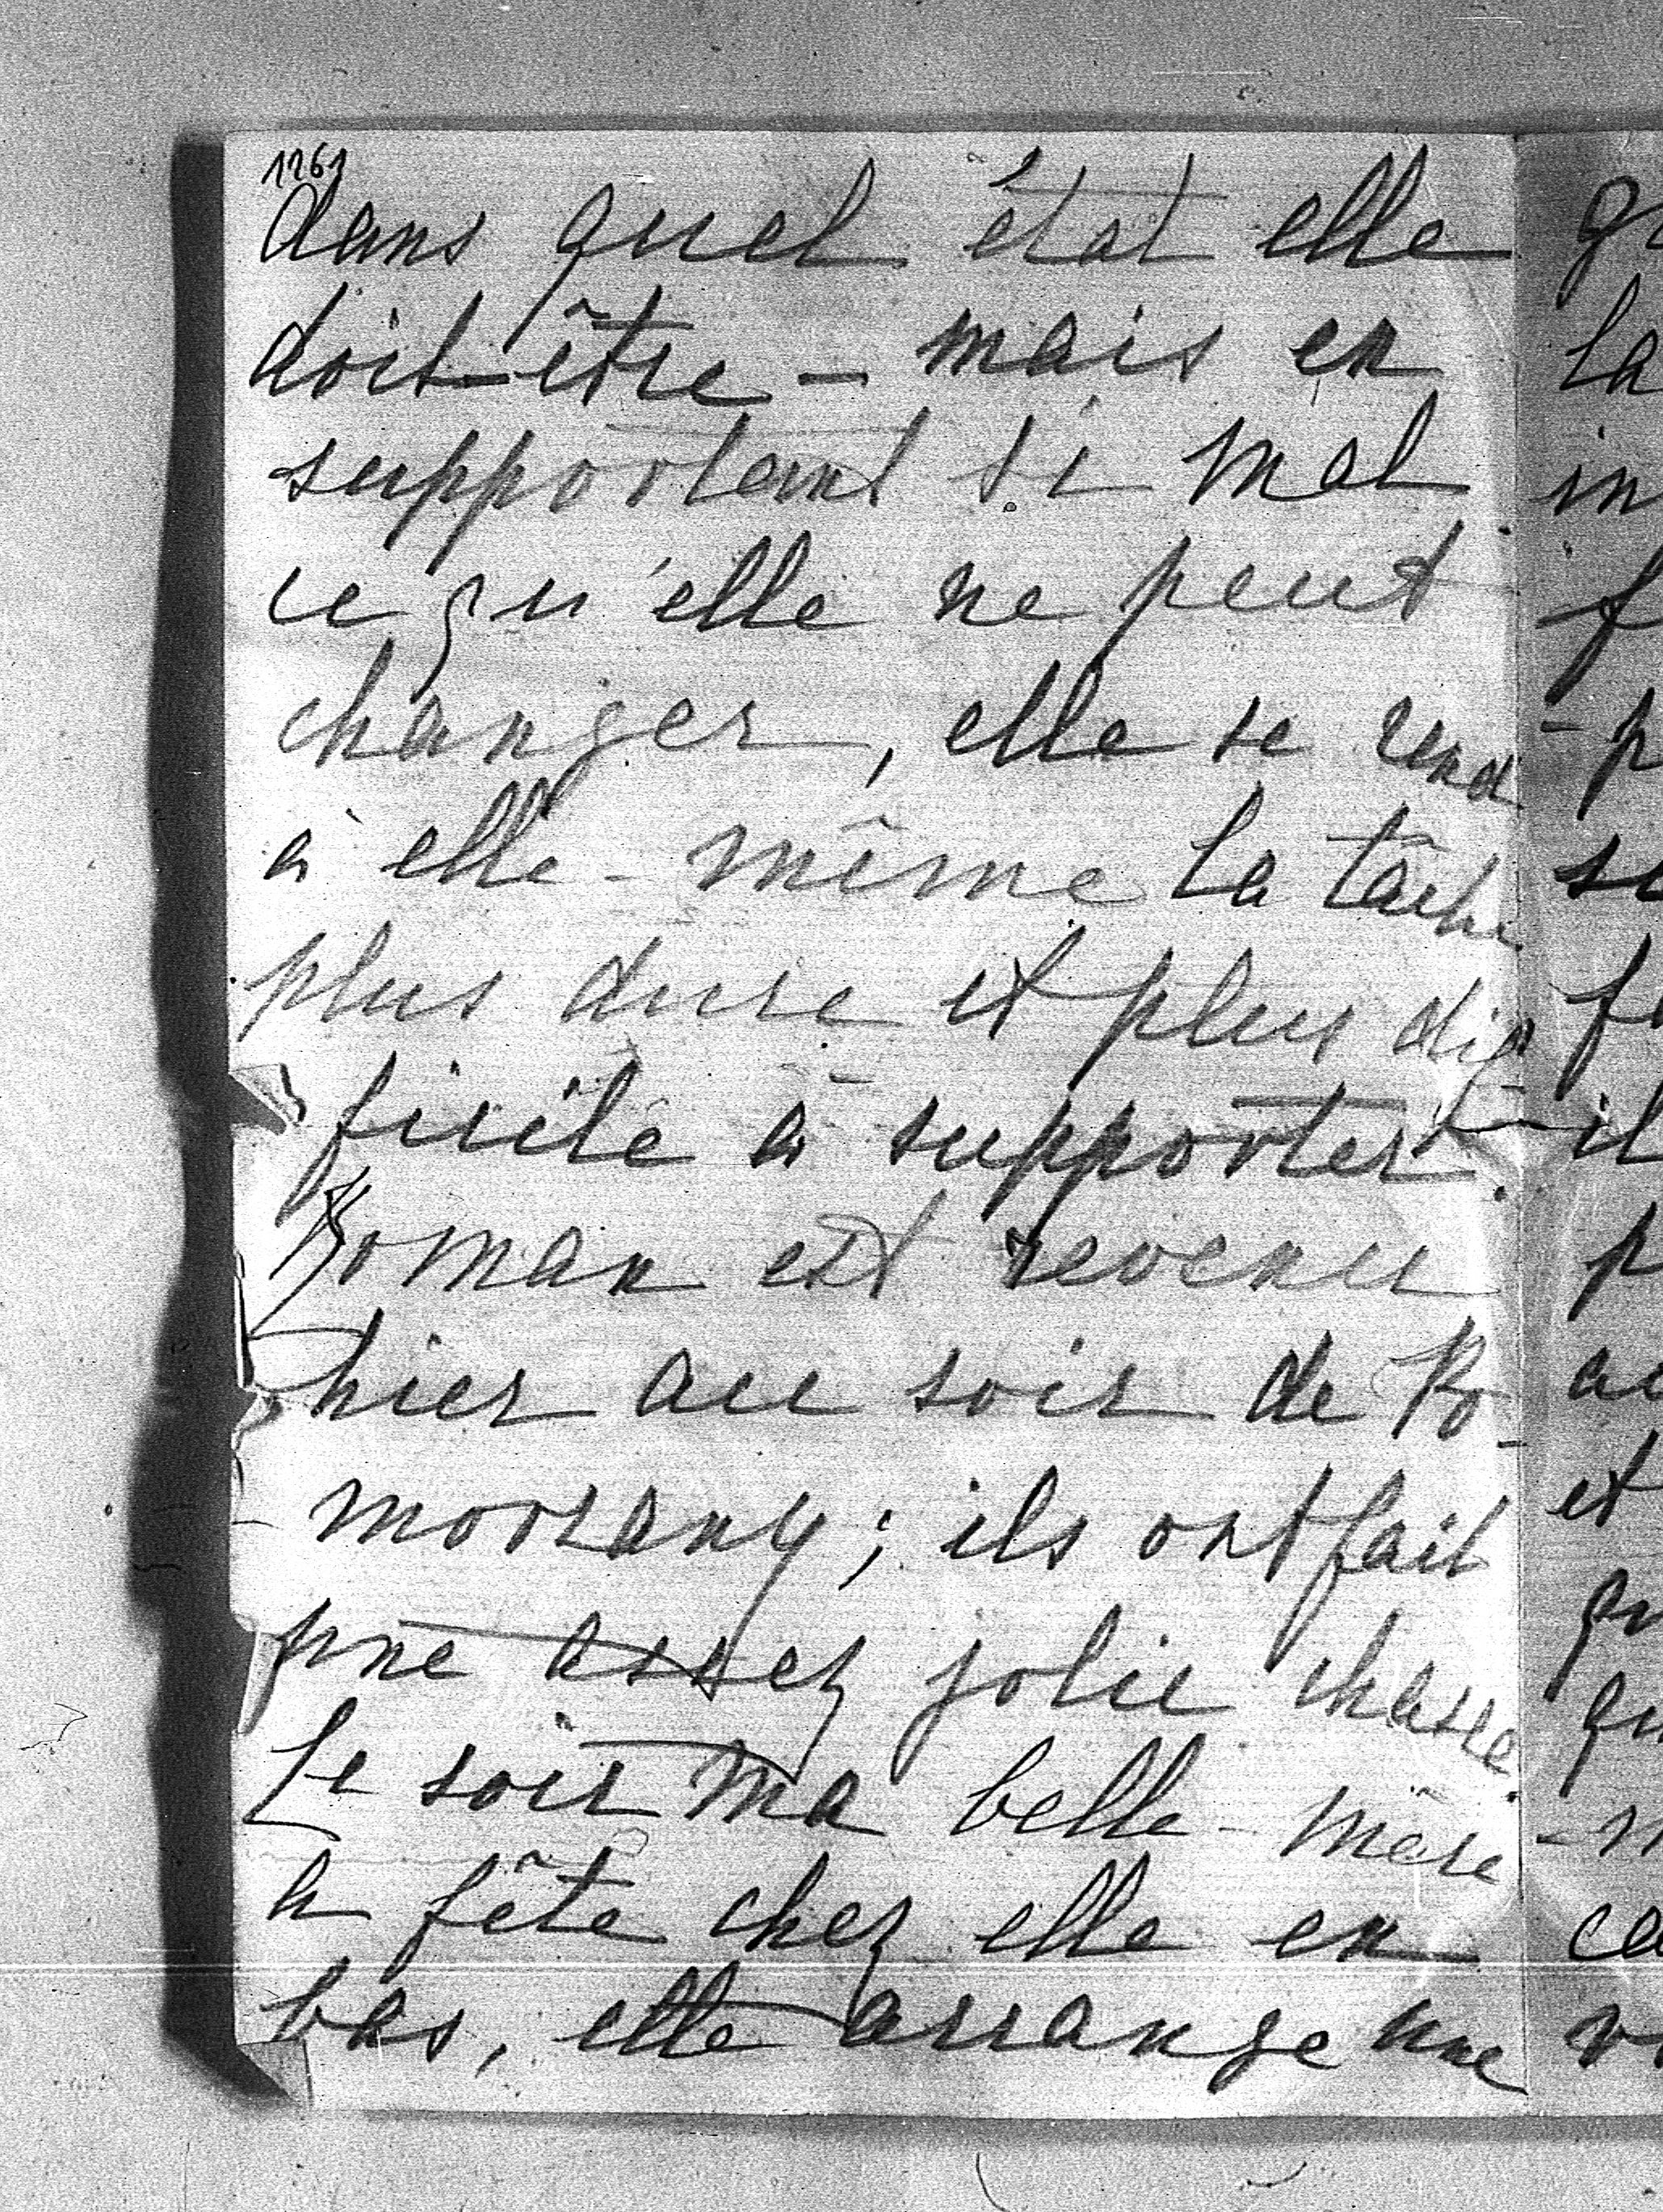 1261
dans quel état elle
doit-être - mais en
supportant si mal
ce qu'elle ne peut
changer, elle se rend
à elle-même la tâche
plus dure et plus dif-
ficile à supporter.
Roman est revenu
hier au soir de Po-
morzany; ils ont fait
une assez jolie chasse.
Le soir ma belle-mère
a fête chez elle en
bas, elle arrange une